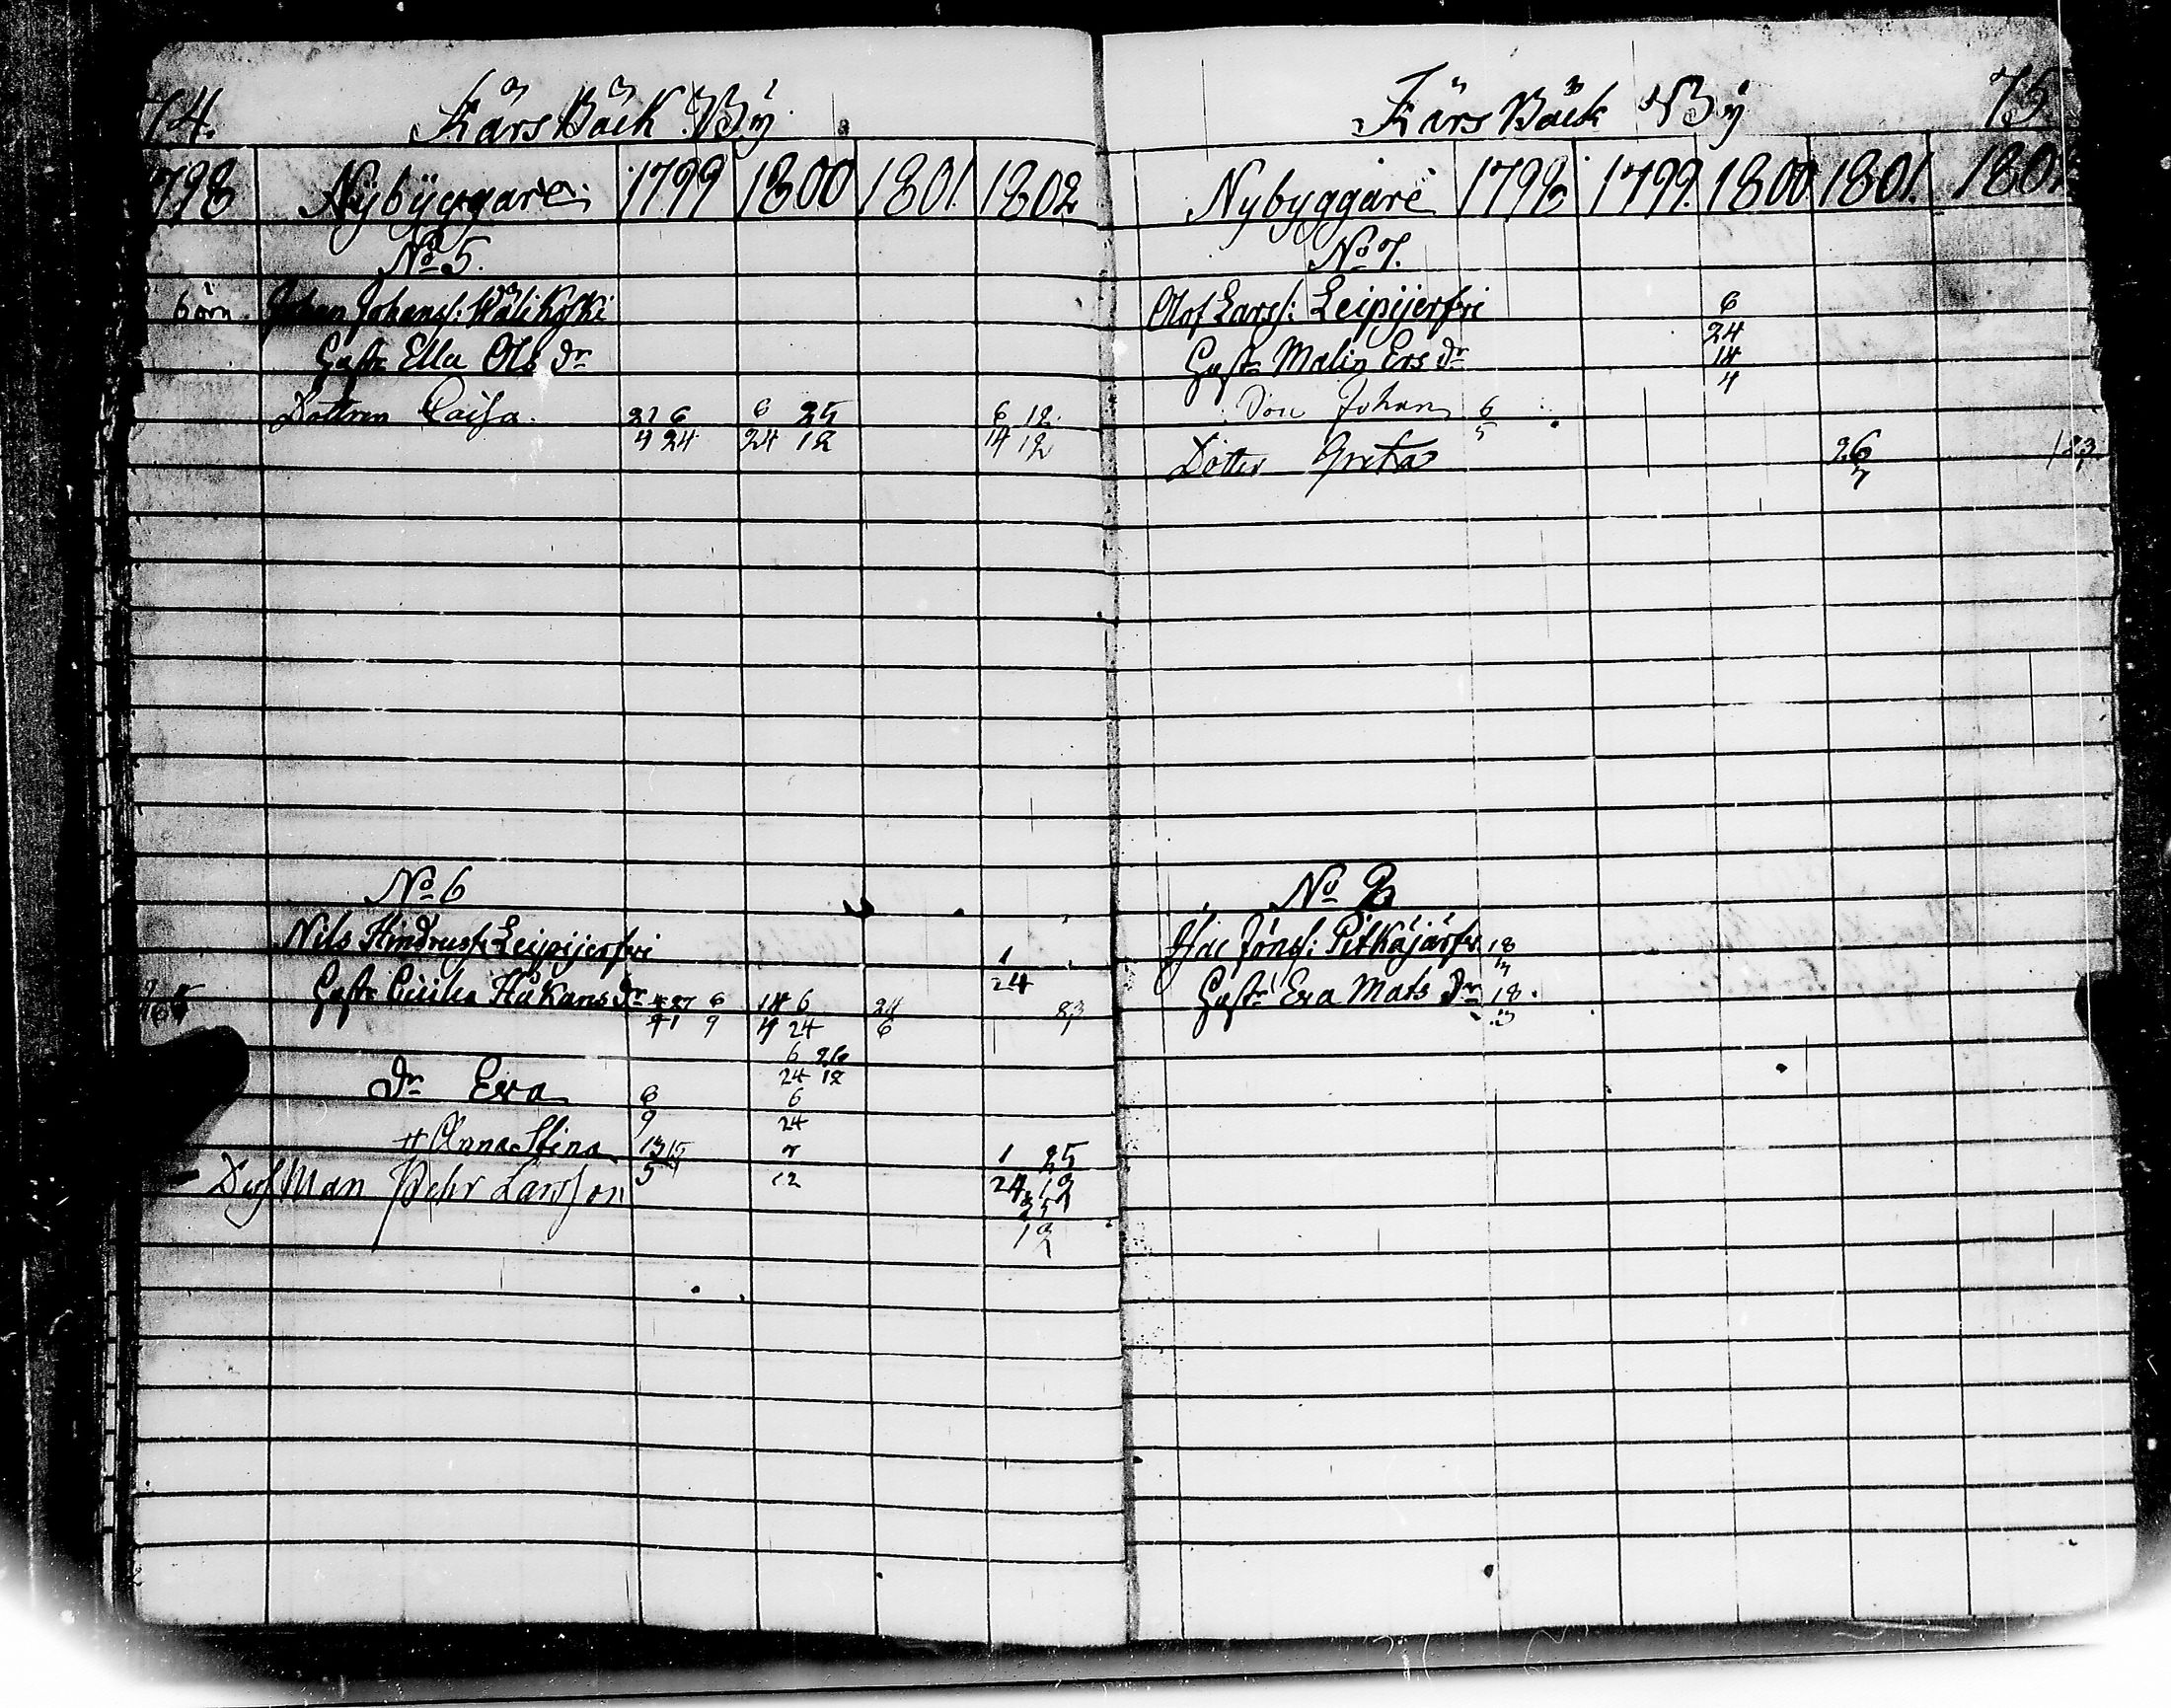 74.
Kärs Bäck By
1798 Nybyggare 1799 1800 1801. 1802
No 5.
Johan Johanss: Wälikoski
Hust: Ella Ols dr
Dottren Caisa. 27 6 6 25 6 12
4 24 24 12 14 12
No 6
Nils Hindrss: Leipijerfwi 1
24
Hust: Cicilia Håkans dr 4 27 6 14 6 24
9 4 24 6
6 26
24 12
dr Eva 6 6
9 24
Anna Stina 13 15 1 25
5 12 24 12
Dess Man Pehr Larsson 25
12
Kärs Bäck By
75
Nybyggare 1798 1799. 1800 1801. 1802
No 7.
Olof Larss: Leipijerfwi 6
24
Hust: Malin Ers dr 14
4
Son Johan 6
5
Dotter Greta 26
7
No 8
Isac Jönss: Pitkäjärfwi 18
Hust: Eva Mats dr 18.
3